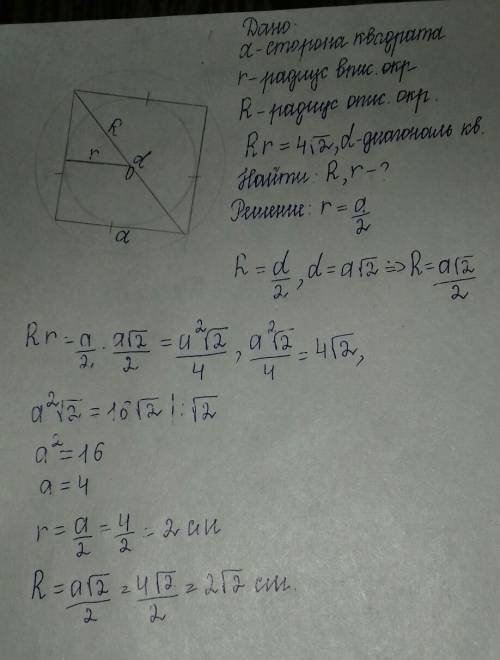 Дано:
a-сторона квадрата
r-радиус впис. окр
R-радиус опис. окр.
Rr = 4√2, d-диагональ кв.
Найти: R, r - ?
Решение: r = a/2
R = d/2, d = a√2 => R = a√2/2
R
r
d
O
a
Rr = a/2 · a√2/2 = a²√2/4, a²√2/4 = 4√2,
a²√2 = 16√2 | : √2
a² = 16
a = 4
r = a/2 = 4/2 = 2 см
R = a√2/2 = 4√2/2 = 2√2 см.